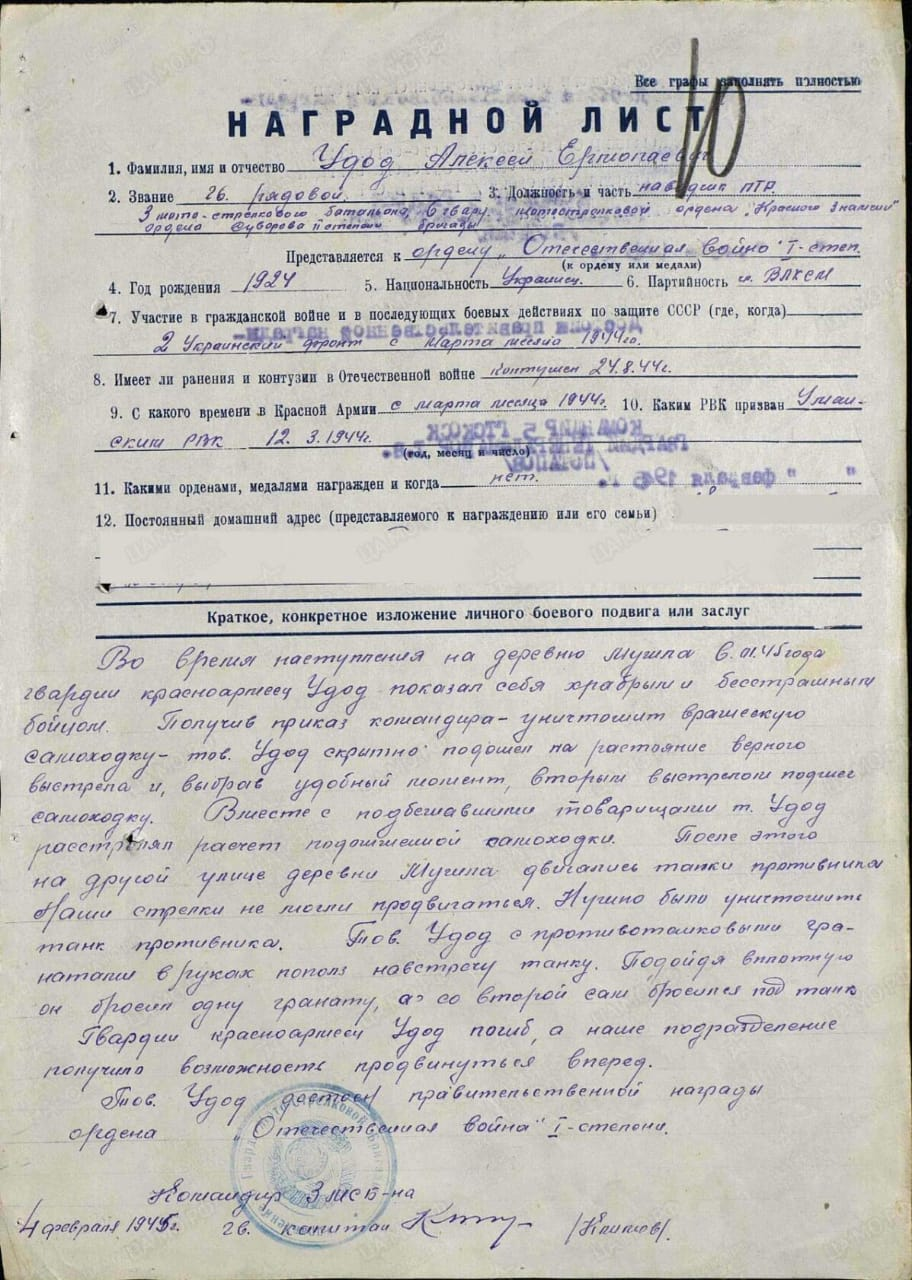 Все графы заполнять полностью
10
НАГРАДНОЙ ЛИСТ
1. Фамилия, имя и отчество Удод Алексей Ермолаевич
2. Звание гв. рядовой. 3. Должность и часть наводчик ПТР.
3 мото-стрелкового батальона, 6 гвард. мотострелковой ордена "Красного Знамени"
ордена Суворова II степени бригады
Представляется к ордену "Отечественная война" I-степ.
(к ордену или медали)
4. Год рождения 1924 5. Национальность Украинец. 6. Партийность чл. ВЛКСМ
7. Участие в гражданской войне и в последующих боевых действиях по защите СССР (где, когда)
2 Украинский фронт с марта месяца 1944го.
8. Имеет ли ранения и контузии в Отечественной войне контужен 24.8.44г.
9. С какого времени в Красной Армии с марта месяца 1944г. 10. Каким РВК призван Уман-
ским РВК 12.3.1944г.
(год, месяц и число)
11. Какими орденами, медалями награжден и когда нет.
12. Постоянный домашний адрес (представляемого к награждению или его семьи)
Краткое, конкретное изложение личного боевого подвига или заслуг
Во время наступления на деревню Мушла 6.01.45 года
гвардии красноармеец Удод показал себя храбрым и бесстрашным
бойцом. Получив приказ командира - уничтожит вражескую
самоходку - тов. Удод скрытно подошел на растояние верного
выстрела и, выбрав удобный момент, вторым выстрелом поджег
самоходку. Вместе с подбежавшими товарищами т. Удод
расстрелял расчет подожженной самоходки. После этого
на другой улице деревни Мушла двигались танки противника
Наши стрелки не могли продвигаться. Нужно было уничтожить
танк противника. Тов. Удод с противотанковыми гра-
натами в руках пополз навстречу танку. Подойдя вплотную
он бросил одну гранату, а со второй сам бросился под танк
Гвардии красноармеец Удод погиб, а наше подразделение
получило возможность продвинуться вперед.
Тов. Удод достоен правительственной награды
ордена "Отечественная война" I-степени.
Командир 3 мсб-на
4 февраля 1945г. гв. капитан (Климов).